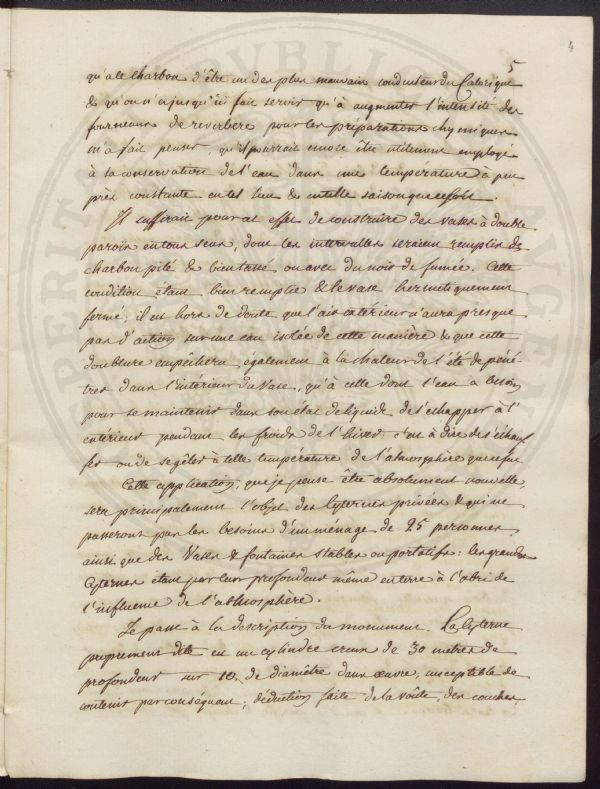 4
5
qu'a le charbon d'être un des plus mauvais conducteur du Calorique
& qu'on n'a jusqu'ici fait servir qu'à augmenter l'intensité des
fourneaux de reverbère pour les préparations chymiques
m'a fait penser, qu'il pourrait encore être utilement employé
à la conservation de l'eau dans une température à peu
près constante en tel lieu & en telle saison que ce soit.
Il suffirait pour cet effet de construire des vases à double
parois en tous sens, dont les intervalles seraient remplis de
charbon pilé & bien tassé ou avec du noir de fumée. Cette
condition étant bien remplie & le vase hermetiquement
fermé; il est hors de doute que l'air extérieur n'aura presque
pas d'action sur une eau isolée de cette manière & que cette
doublure empêchera également à la chaleur de l'été de péné-
trer dans l'intérieur du Vase, qu'à celle dont l'eau a besoin
pour se maintenir dans son état de liquide de s'échapper à l'
extérieur pendant les froids de l'hiver: c'est à dire de s'échauf-
fer ou de se gêler à telle température de l'atmosphère que ce fut
Cette application, que je pense être absolument nouvelle,
sera principalement l'objet des Cyternes privées & qui ne
passeront pas les besoins d'un ménage de 25 personnes,
ainsi que des Vases & fontaines stables ou portatifs: les grandes
Cyternes étant par leur profondeur même en terre à l'abri de
l'influence de l'athmosphère.
Je passe à la description du monument. La Cyterne
proprement dite est un cylindre creux de 30 metres de
profondeur sur 10. de diamêtre dans œuvre; susceptible de
contenir par conséquent, déduction faite de la voûte, des couches